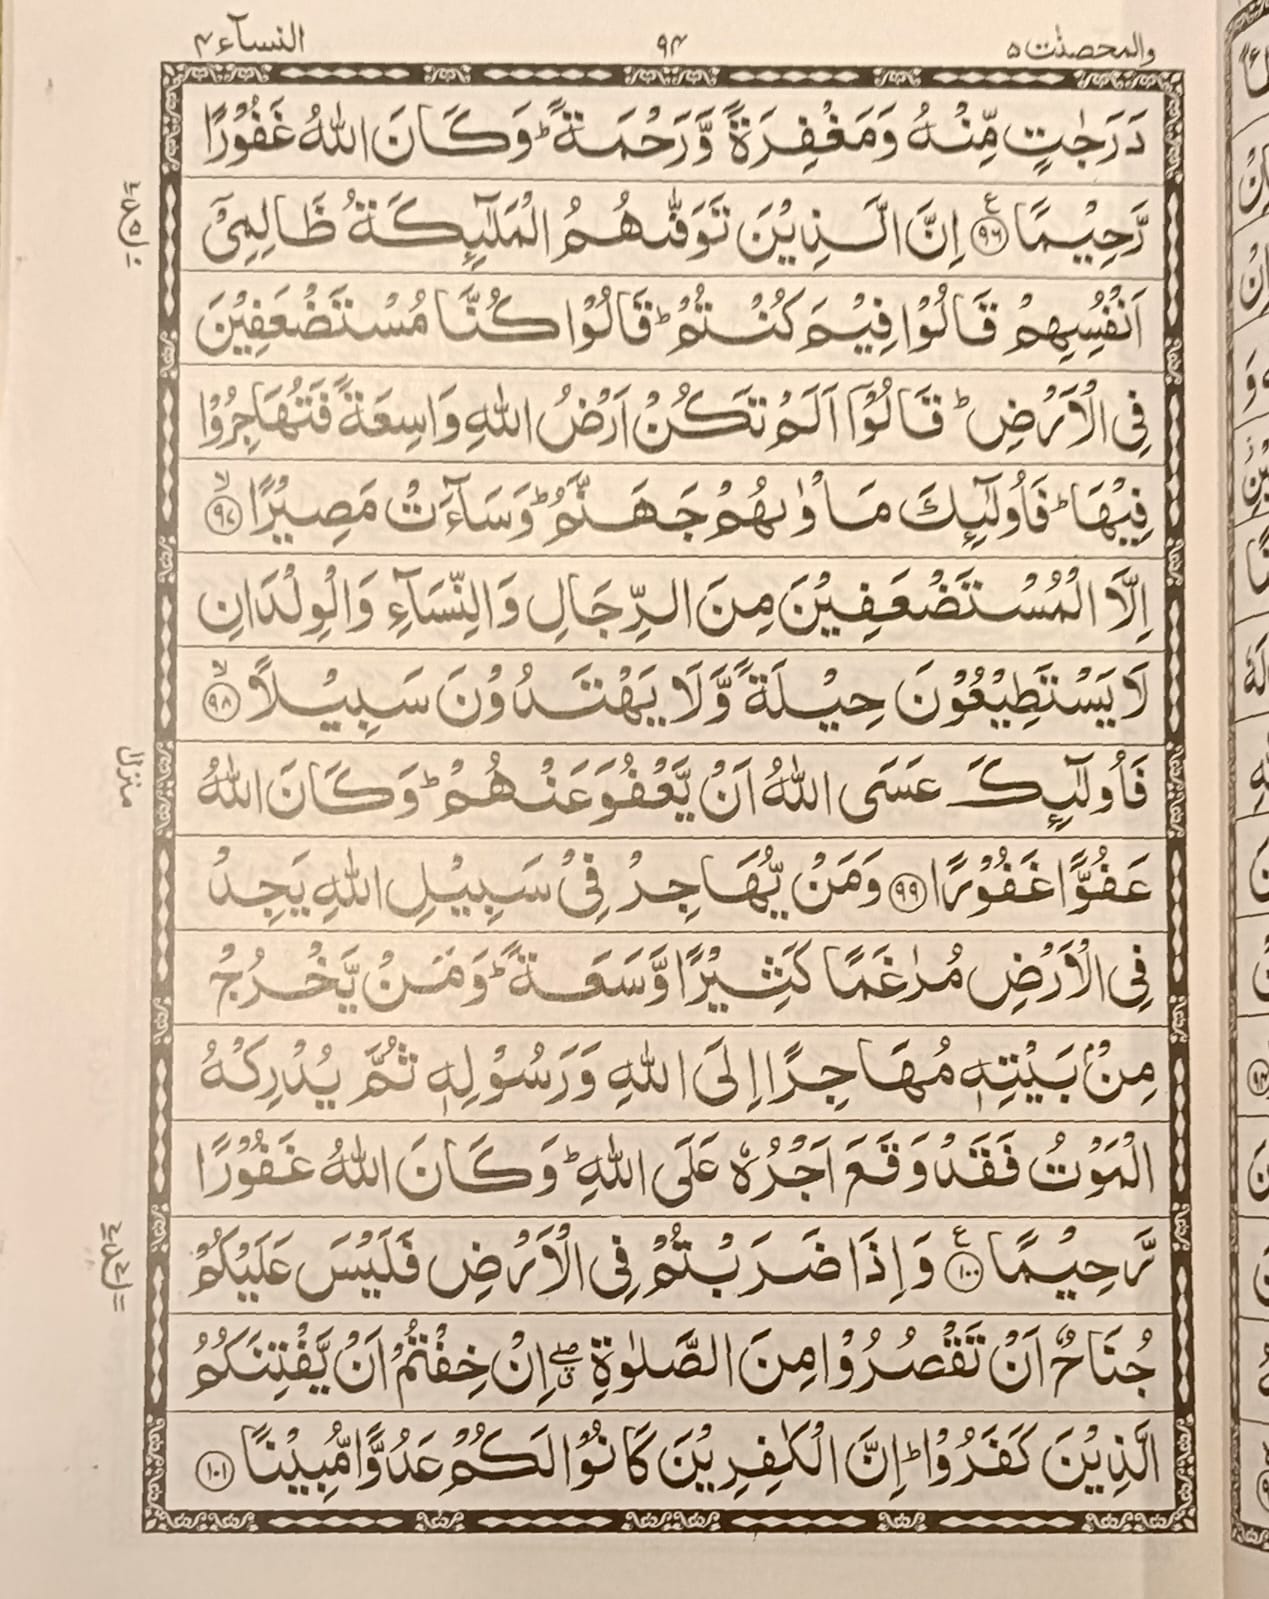 والمحصنٰت ۵ ۹۴ النسآء ۴
دَرَجٰتٍ مِّنْهُ وَمَغْفِرَةً وَّرَحْمَةً ؕ وَكَانَ اللّٰهُ غَفُوْرًا
رَّحِيْمًا ﴿۹۶﴾ ع اِنَّ الَّذِيْنَ تَوَفّٰىهُمُ الْمَلٰٓئِكَةُ ظَالِمِىْۤ
اَنْفُسِهِمْ قَالُوْا فِيْمَ كُنْتُمْ ؕ قَالُوْا كُنَّا مُسْتَضْعَفِيْنَ
فِى الْاَرْضِ ؕ قَالُوْۤا اَلَمْ تَكُنْ اَرْضُ اللّٰهِ وَاسِعَةً فَتُهَاجِرُوْا
فِيْهَا ؕ فَاُولٰٓئِكَ مَاْوٰىهُمْ جَهَنَّمُ ؕ وَسَآءَتْ مَصِيْرًا ﴿۹۷﴾ ۙ
اِلَّا الْمُسْتَضْعَفِيْنَ مِنَ الرِّجَالِ وَالنِّسَآءِ وَالْوِلْدَانِ
لَا يَسْتَطِيْعُوْنَ حِيْلَةً وَّلَا يَهْتَدُوْنَ سَبِيْلًا ﴿۹۸﴾ ۙ
فَاُولٰٓئِكَ عَسَى اللّٰهُ اَنْ يَّعْفُوَ عَنْهُمْ ؕ وَكَانَ اللّٰهُ
عَفُوًّا غَفُوْرًا ﴿۹۹﴾ وَمَنْ يُّهَاجِرْ فِىْ سَبِيْلِ اللّٰهِ يَجِدْ
فِى الْاَرْضِ مُرٰغَمًا كَثِيْرًا وَّسَعَةً ؕ وَمَنْ يَّخْرُجْ
مِنْۢ بَيْتِهٖ مُهَاجِرًا اِلَى اللّٰهِ وَرَسُوْلِهٖ ثُمَّ يُدْرِكْهُ
الْمَوْتُ فَقَدْ وَقَعَ اَجْرُهٗ عَلَى اللّٰهِ ؕ وَكَانَ اللّٰهُ غَفُوْرًا
رَّحِيْمًا ﴿۱۰۰﴾ ع وَاِذَا ضَرَبْتُمْ فِى الْاَرْضِ فَلَيْسَ عَلَيْكُمْ
جُنَاحٌ اَنْ تَقْصُرُوْا مِنَ الصَّلٰوةِ ۖ اِنْ خِفْتُمْ اَنْ يَّفْتِنَكُمُ
الَّذِيْنَ كَفَرُوْا ؕ اِنَّ الْكٰفِرِيْنَ كَانُوْا لَكُمْ عَدُوًّا مُّبِيْنًا ﴿۱۰۱﴾